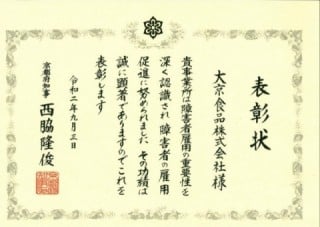 表彰状
大京食品株式会社様
貴事業所は障害者雇用の重要性を
深く認識され障害者の雇用
促進に努められました その功績は
誠に顕著でありますのでこれを
表彰します
令和二年九月三日
京都府知事 西脇隆俊